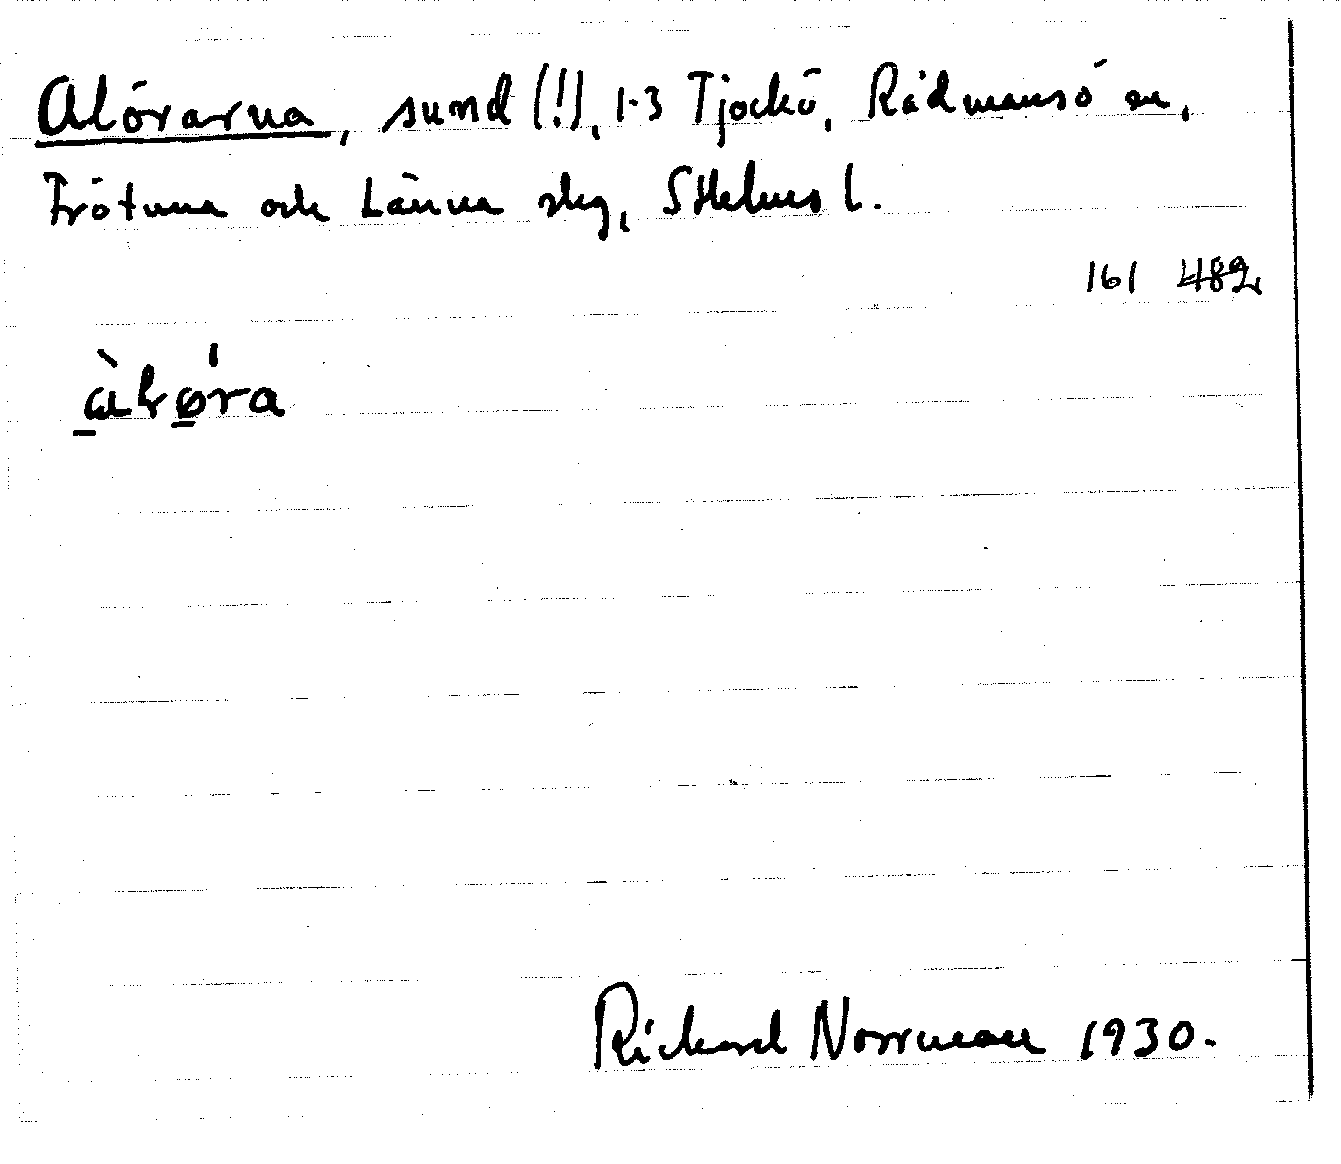 Alörarna, sund (!), 1-3 Tjockö, Rådmansö sn,
Frötuna och Länna slg, Sthlms l.
161 482
àløra
Rickard Norrman 1930.